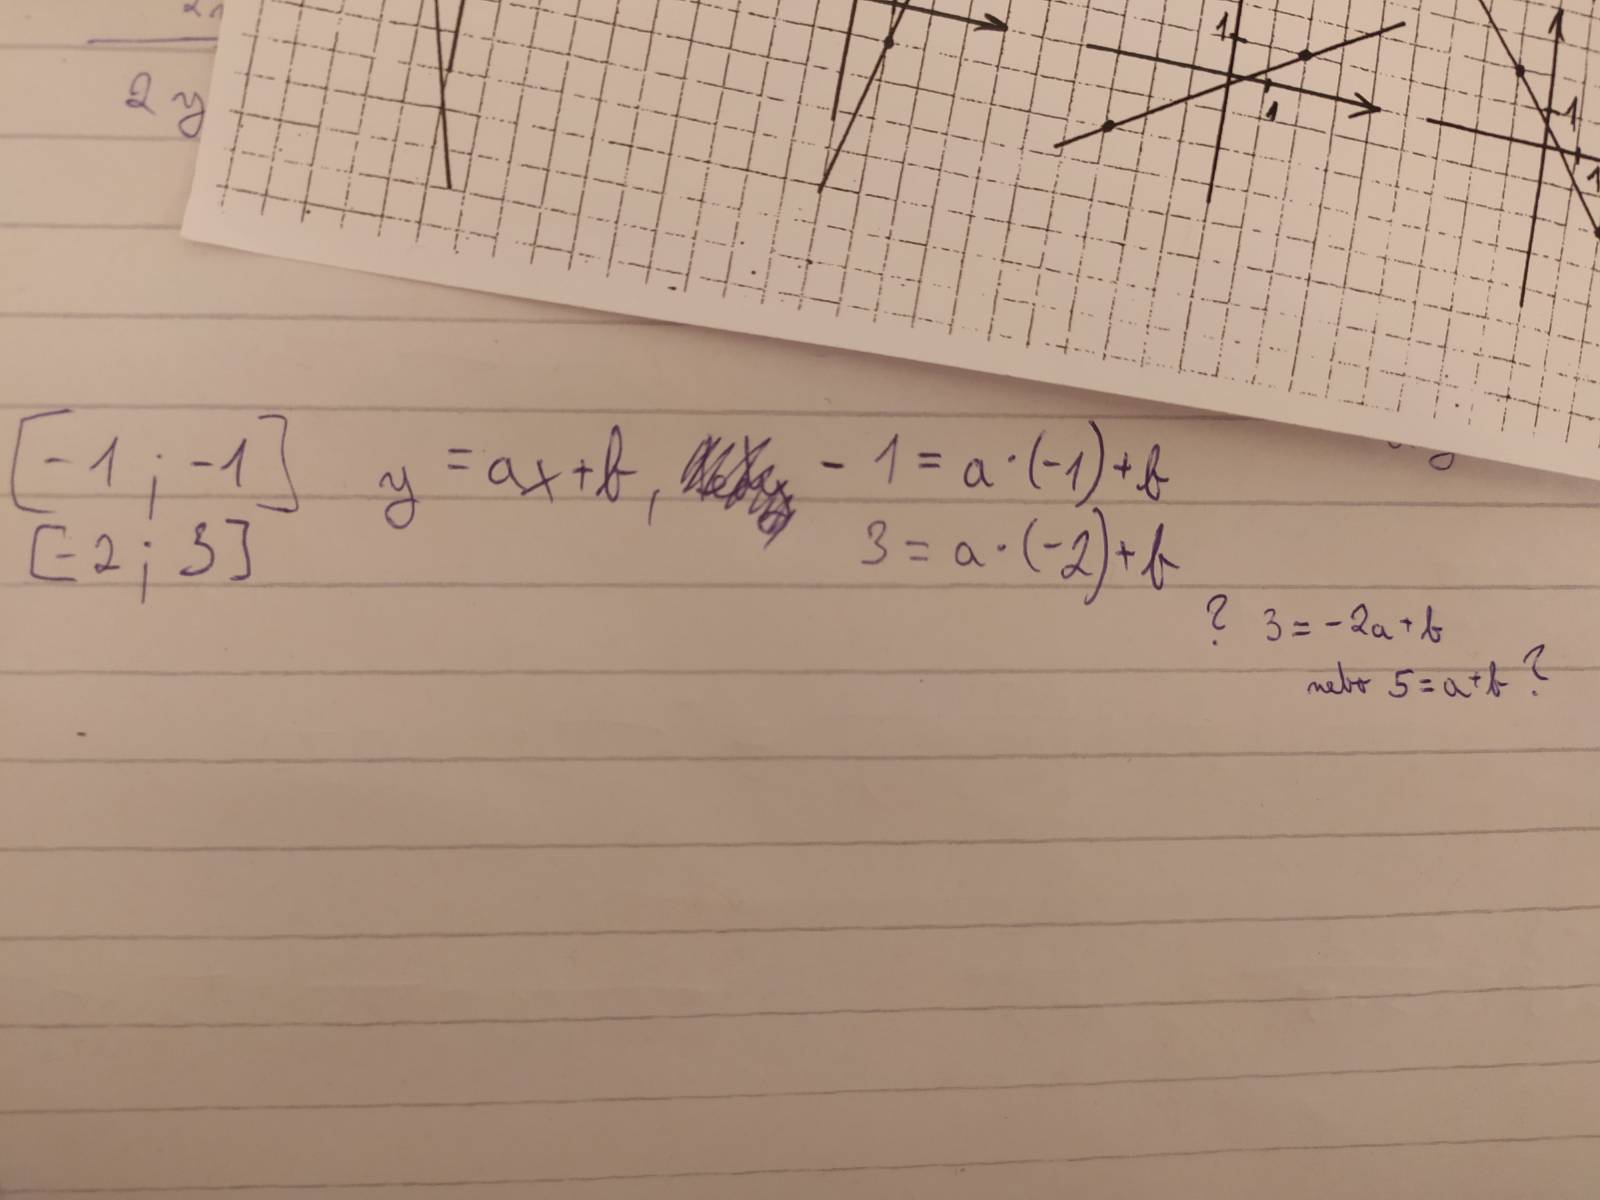 2 y
1
1
1
1
1
[-1 ; -1] y = ax + b, - 1 = a · (-1) + b
[-2 ; 3] 3 = a · (-2) + b
? 3 = -2a + b
nebo 5 = a + b ?